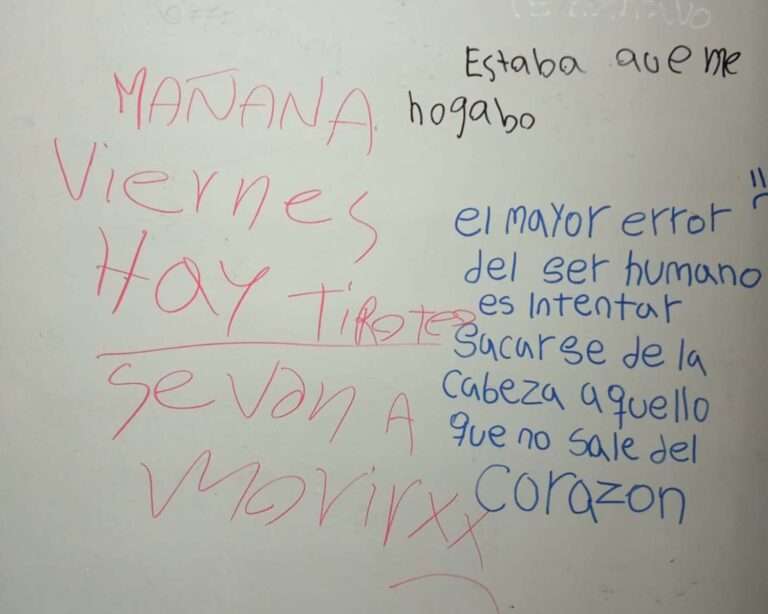 MAÑANA
Viernes
HAY TIROTEO
Se van A
Morirxx
Estaba que me
hogabo
el mayor error
del ser humano
es Intentar
Sacarse de la
Cabeza aquello
que no sale del
Corazon